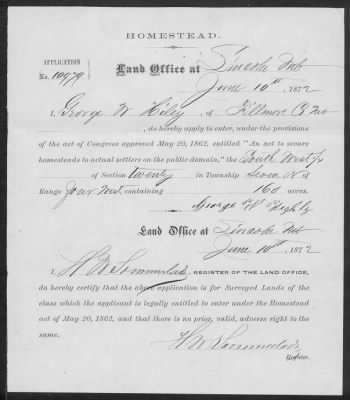 HOMESTEAD.
APPLICATION
No. 10979
Land Office at Lincoln Neb
June 10th, 1872
I, George W Hiley, of Fillmore Co Neb
, do hereby apply to enter, under the provisions
of the act of Congress approved May 20, 1862, entitled "An act to secure
homesteads to actual settlers on the public domain," the South West 1/4
of Section twenty in Township Seven N of
Range four West, containing 160 acres.
George W Highly
Land Office at Lincoln Neb
June 10th, 1872
I, H W Sommerlad, REGISTER OF THE LAND OFFICE,
do hereby certify that the above application is for Surveyed Lands of the
class which the applicant is legally entitled to enter under the Homestead
act of May 20, 1862, and that there is no prior, valid, adverse right to the
same.
H W Sommerlad,
Register.